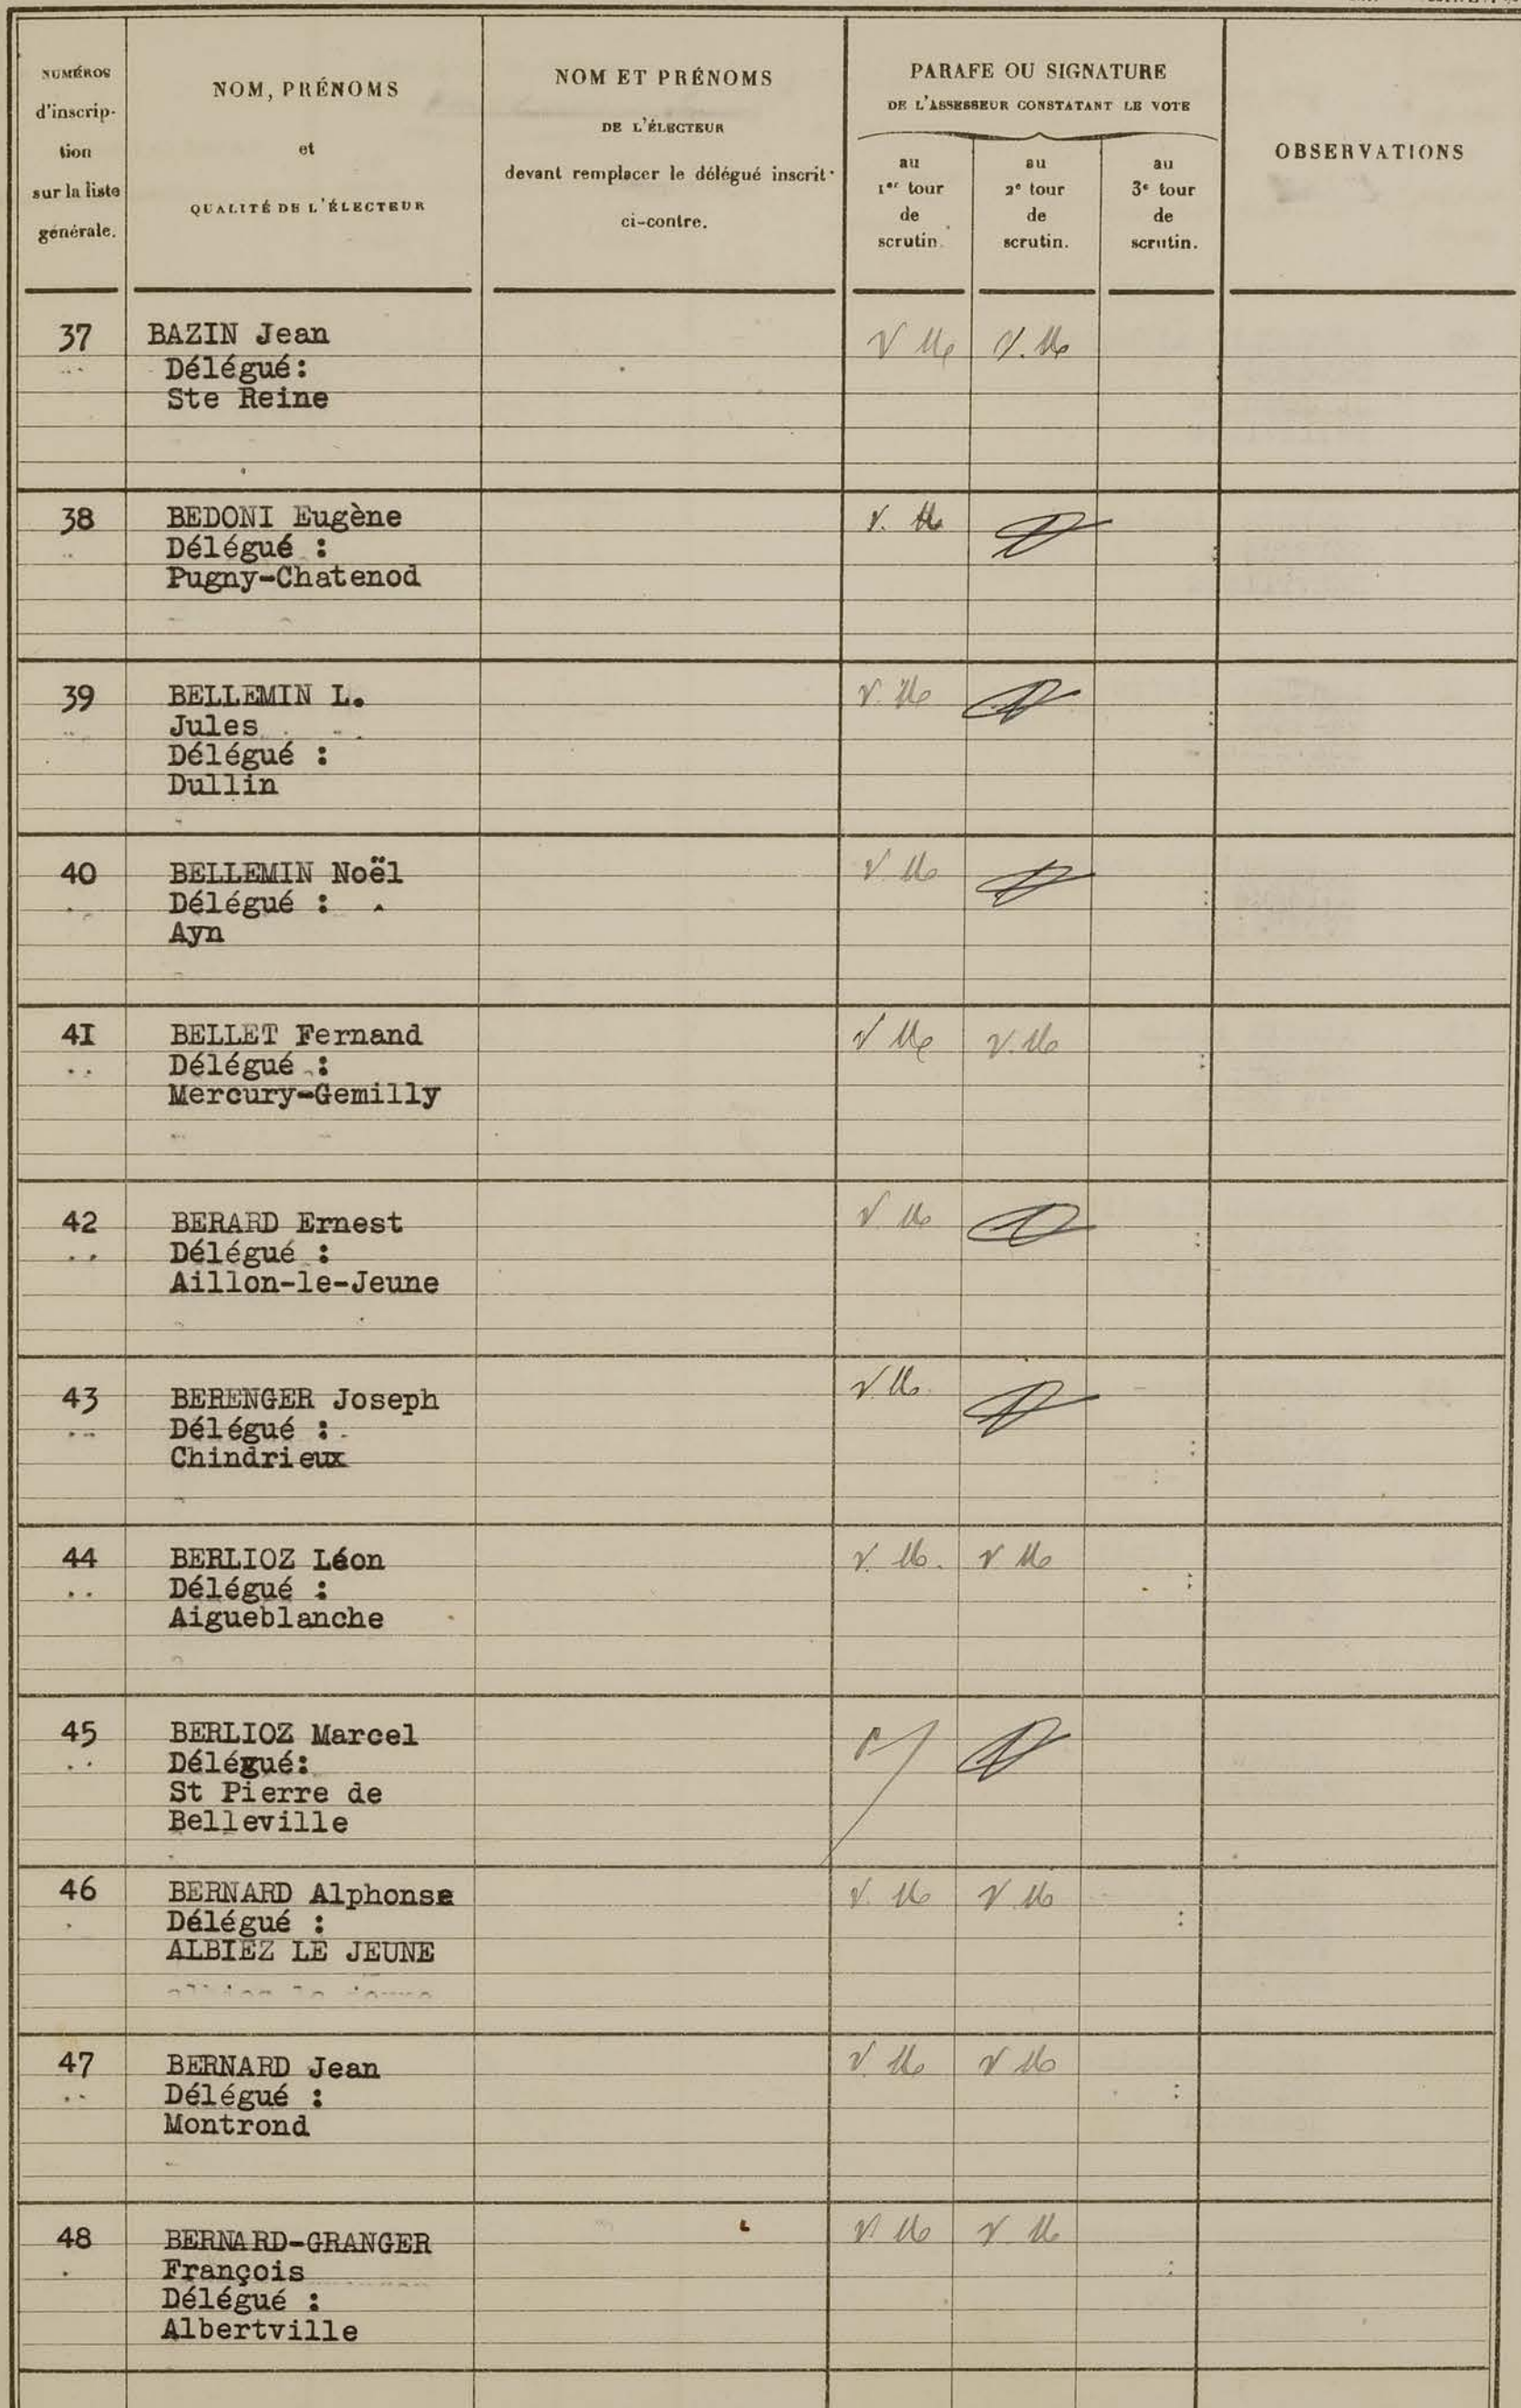 NUMÉROS
d'inscrip-
tion
sur la liste
générale.
NOM, PRÉNOMS
et
QUALITÉ DE L'ÉLECTEUR
NOM ET PRÉNOMS
DE L'ÉLECTEUR
devant remplacer le délégué inscrit
ci-contre.
PARAFE OU SIGNATURE
DE L'ASSESSEUR CONSTATANT LE VOTE
au
1er tour
de
scrutin.
au
2e tour
de
scrutin.
au
3e tour
de
scrutin.
OBSERVATIONS
37
BAZIN Jean
Délégué:
Ste Reine
38
BEDONI Eugène
Délégué :
Pugny-Chatenod
39
BELLEMIN L.
Jules
Délégué :
Dullin
40
BELLEMIN Noël
Délégué :
Ayn
4I
BELLET Fernand
Délégué :
Mercury-Gemilly
42
BERARD Ernest
Délégué :
Aillon-le-Jeune
43
BERENGER Joseph
Délégué :
Chindrieux
44
BERLIOZ Léon
Délégué :
Aigueblanche
45
BERLIOZ Marcel
Délégué:
St Pierre de
Belleville
46
BERNARD Alphonse
Délégué :
ALBIEZ LE JEUNE
47
BERNARD Jean
Délégué :
Montrond
48
BERNARD-GRANGER
François
Délégué :
Albertville